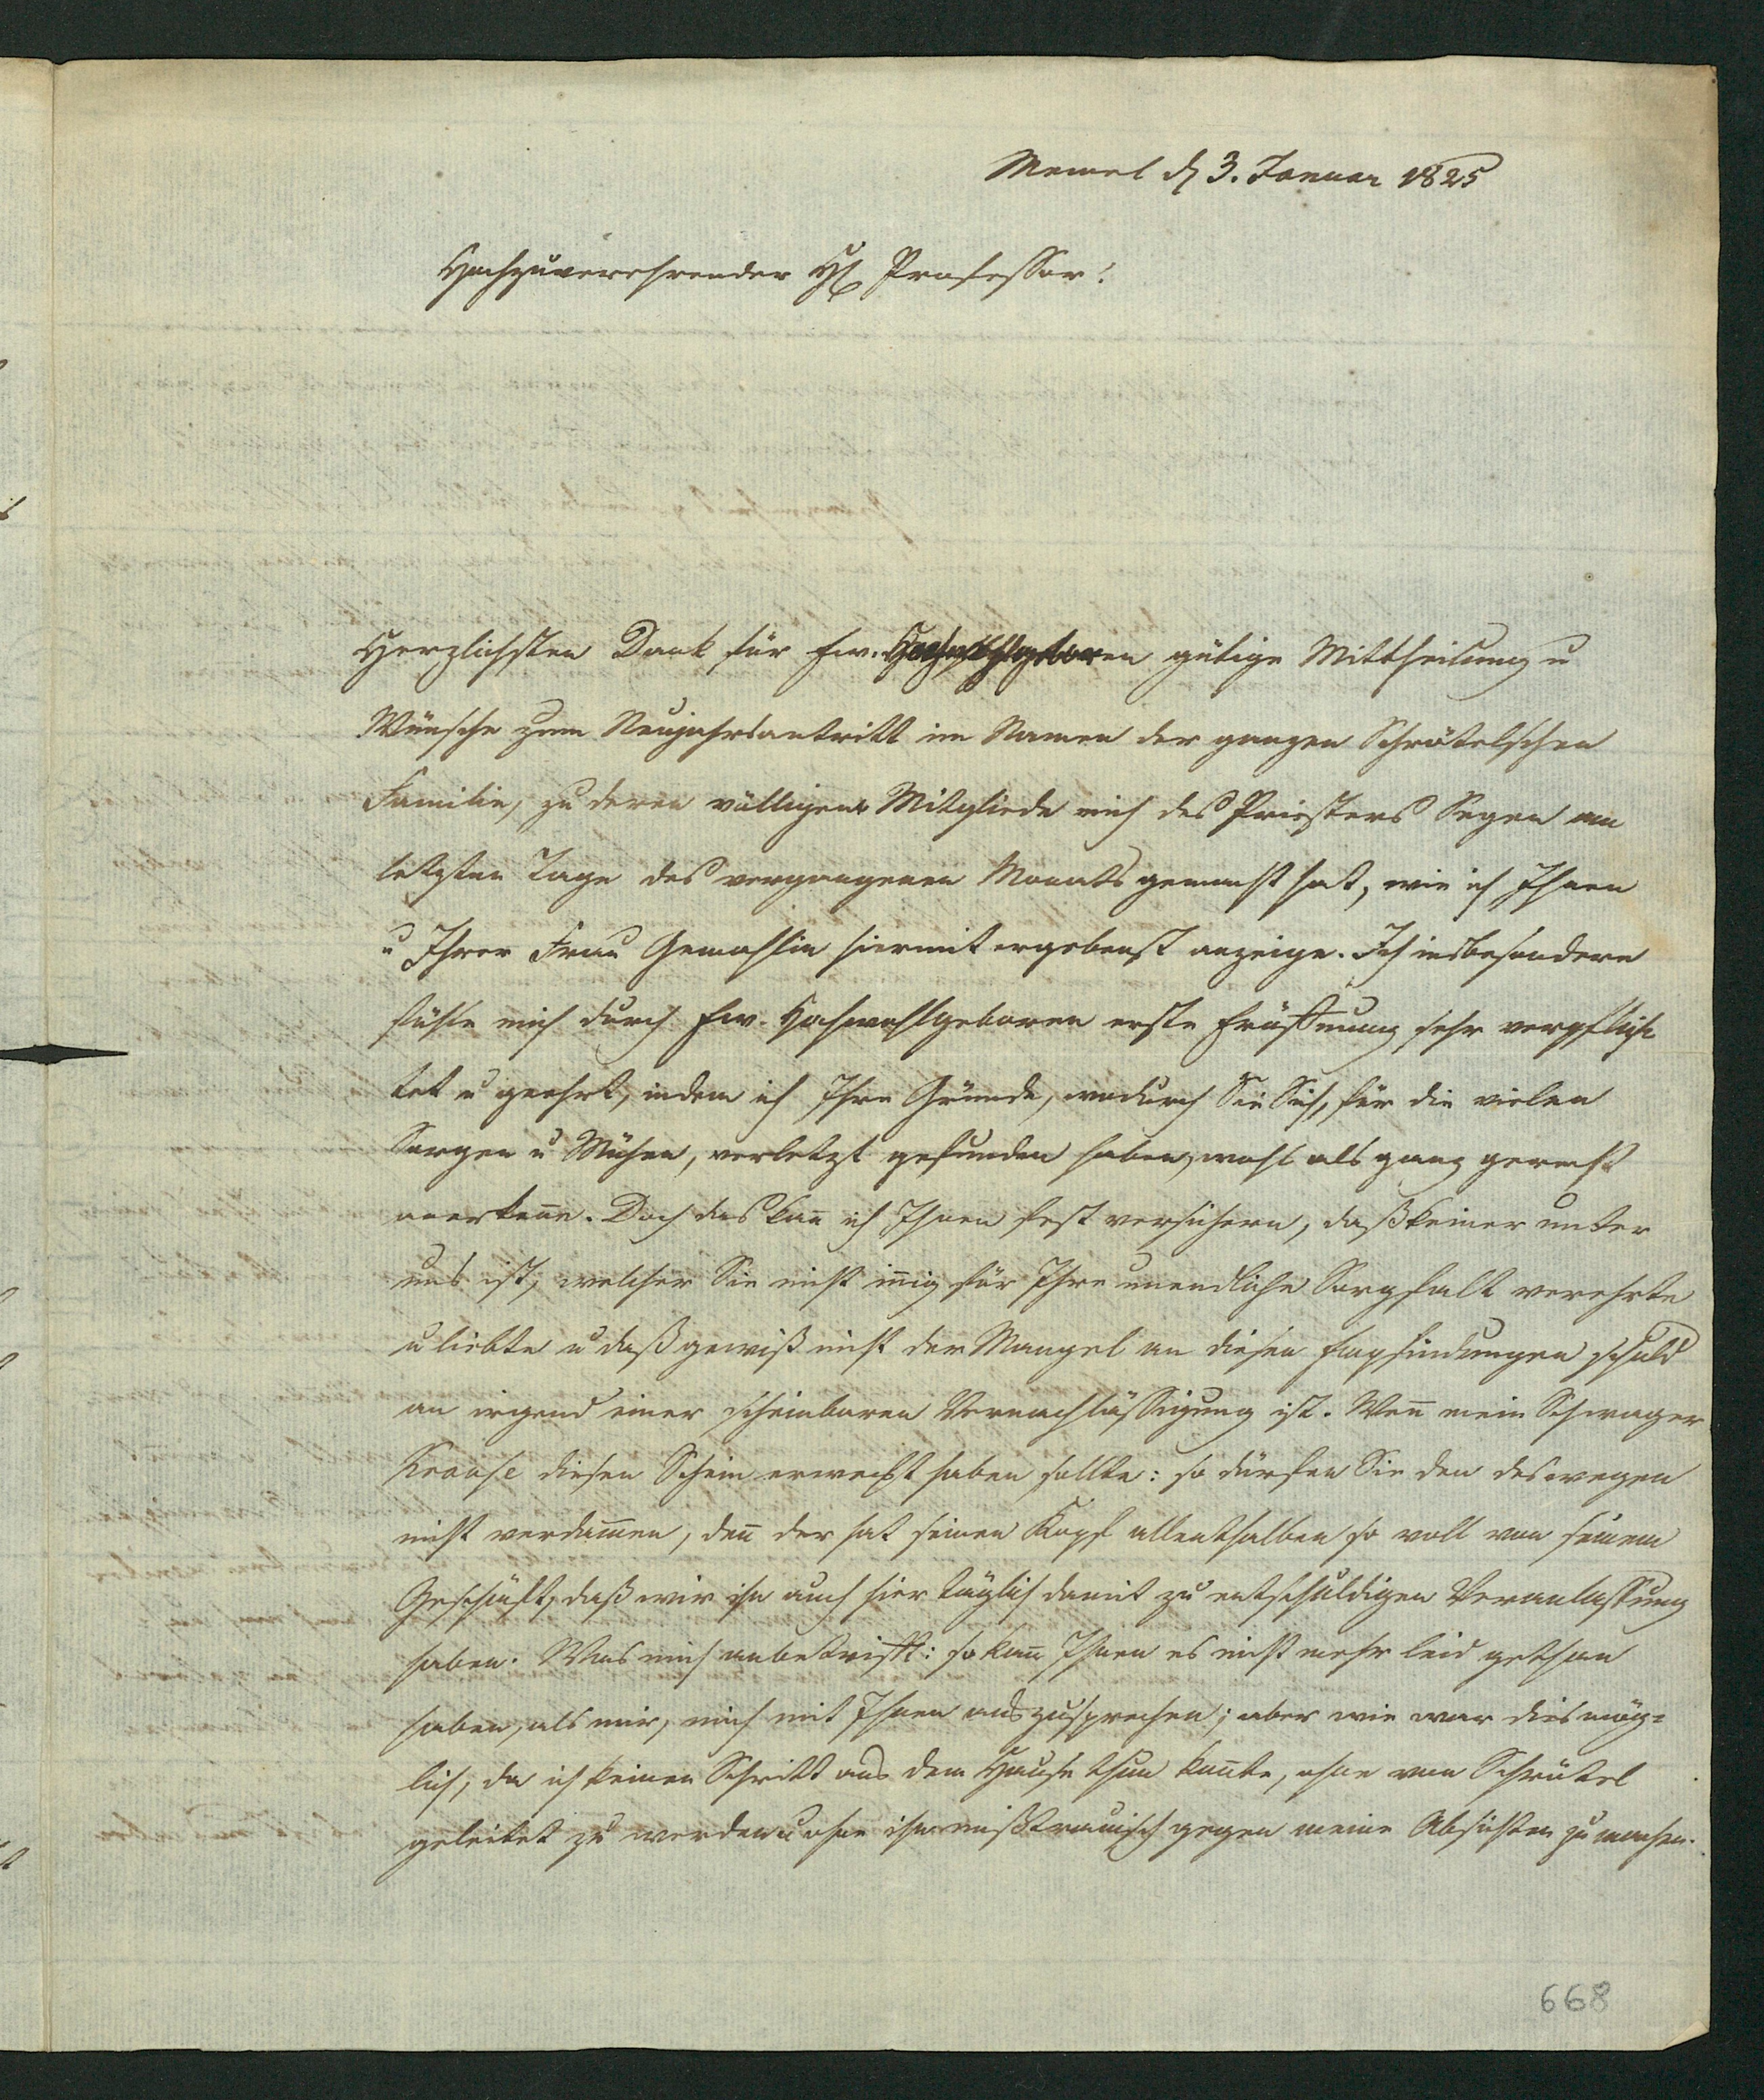 Memel d 3. Januar 1825
Hochzuverehrender H Professor!
Herzlichsten Dank für Ew. Hochwohlgeboren gütige Mittheilung u
Wünsche zum Neujahrsantritt im Namen der ganzen Schrötelschen
Familie, zu deren völligem Mitgliede mich des Priesters Segen am
letzten Tage des vergangenen Monats gemacht hat, wie ich Ihnen
u Ihrer Frau Gemahlin hiermit ergebenst anzeige. Ich insbesondere
fühle mich durch Ew. Hochwohlgeboren erste Eröffnung sehr verpflich
tet u geehrt, indem ich Ihre Gründe, wodurch Sie Sich, für die vielen
Sorgen u Mühen, verletzt gefunden haben, wohl als ganz gerecht
anerkenne. Doch das kann ich Ihnen fest versichern, daß keiner unter
uns ist, welcher Sie nicht innig für Ihre unendliche Sorgfalt verehrte
u liebte u daß gewiß nicht der Mangel an diesen Empfindungen schuld
an irgend einer scheinbaren Vernachlässigung ist. Wenn mein Schwager
Krause diesen Schein erweckt haben sollte: so dürfen Sie den deswegen
nicht verdammen, denn der hat seinen Kopf allenthalben so voll von seinem
Geschäft, daß wir ihn auch hier täglich damit zu entschuldigen Veranlassung
haben. Was mich anbetrifft: so kann Ihnen es nicht mehr leid gethan
haben, als mir, mich mit Ihnen auszusprechen; aber wie war dies mög=
lich, da ich keinen Schritt aus dem Hause thun konnte, ohne von Schrötel
geleitet zu werden u ohne ihn mißtrauisch gegen meine Absichten zu machen.
668